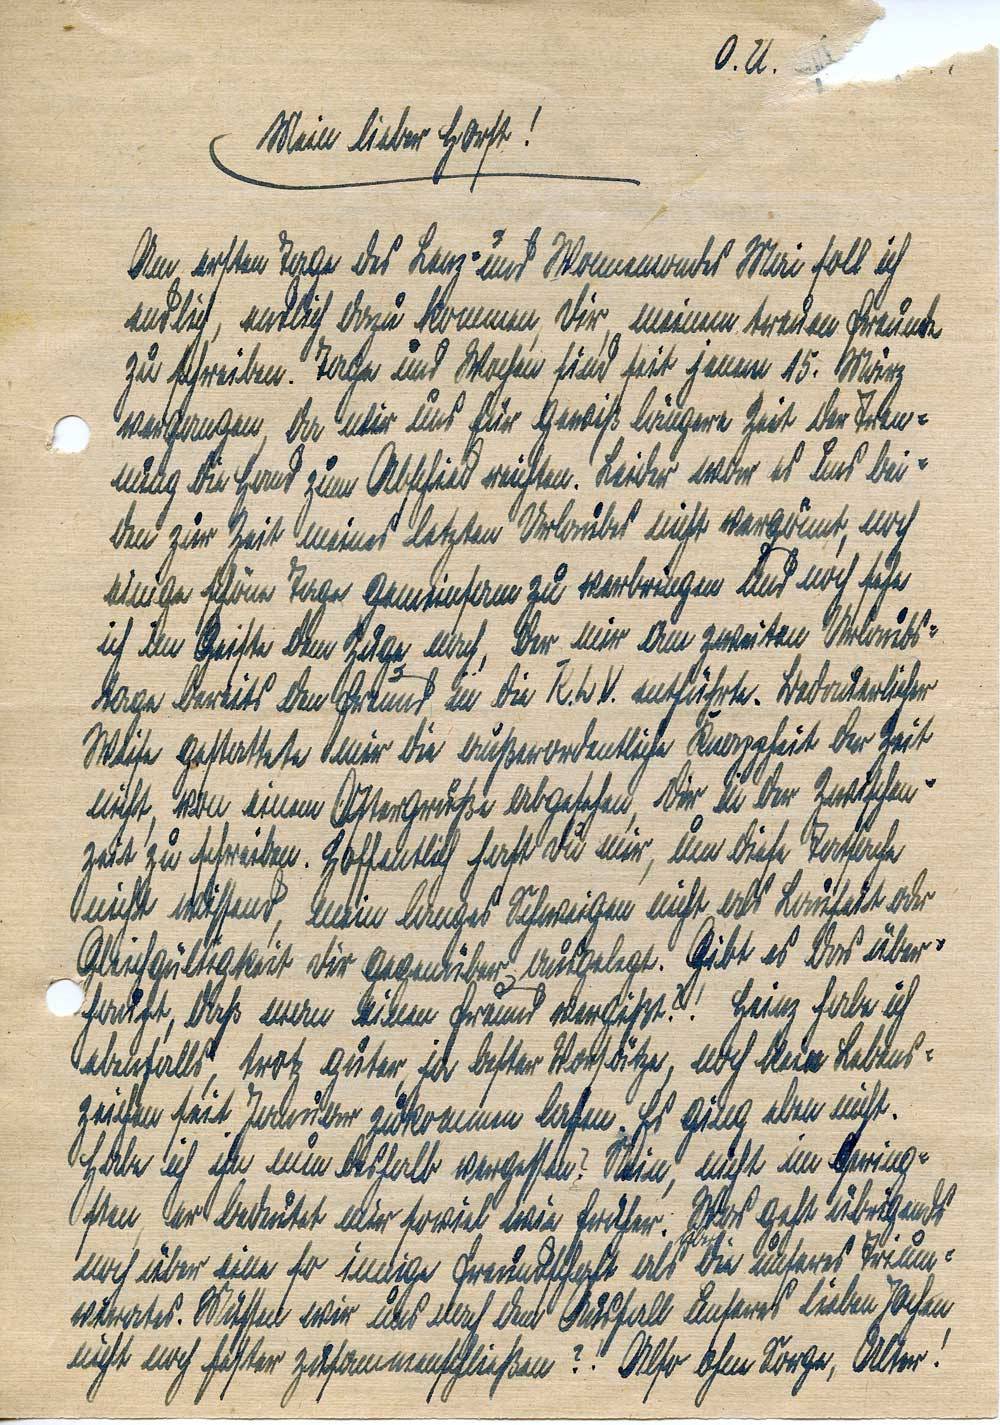 O.U.
Mein lieber Horst!
Am ersten Tage des Lenz- und Wonnemondes Mai soll ich
endlich, endlich dazu kommen, Dir, meinem treuen Freunde
zu schreiben. Tage und Wochen sind seit jenem 15. März
vergangen, da wir uns für gewiß längere Zeit der Tren-
nung die Hand zum Abschied reichten. Leider war es uns bei-
den zur Zeit meines letzten Urlaubes nicht vergönnt, noch
einige schöne Tage gemeinsam zu verbringen und noch sehe
ich im Geiste dem Zuge nach, der mir am zweiten Urlaubs-
tage bereits den Freund in die K.L.V. entführte. Bedauerlicher
Weise gestattete mir die außerordentliche Knappheit der Zeit
nicht, von einem Ostergruße abgesehen, Dir in der Zwischen-
zeit zu schreiben. Hoffentlich hast Du mir, um diese Tatsache
nicht wissend, mein langes Schweigen nicht als Lauheit oder
Gleichgültigkeit Dir gegenüber ausgelegt. Gibt es das über-
haupt, daß man einen Freund vergißt?! Heinz habe ich
ebenfalls, trotz guter, ja bester Vorsätze, noch kein Lebens-
zeichen seit Januar zukommen lassen. Es ging eben nicht.
Habe ich ihn nun deshalb vergessen? Nein, nicht im Gering-
sten, er bedeutet mir soviel wie früher. Was geht übrigends
noch über eine so innige Freundschaft als die unseres Trium-
virates. Müssen wir uns nach dem Ausfall unseres lieben Jochen
nicht noch fester zusammenschließen?! Also ohne Sorge, Alter!